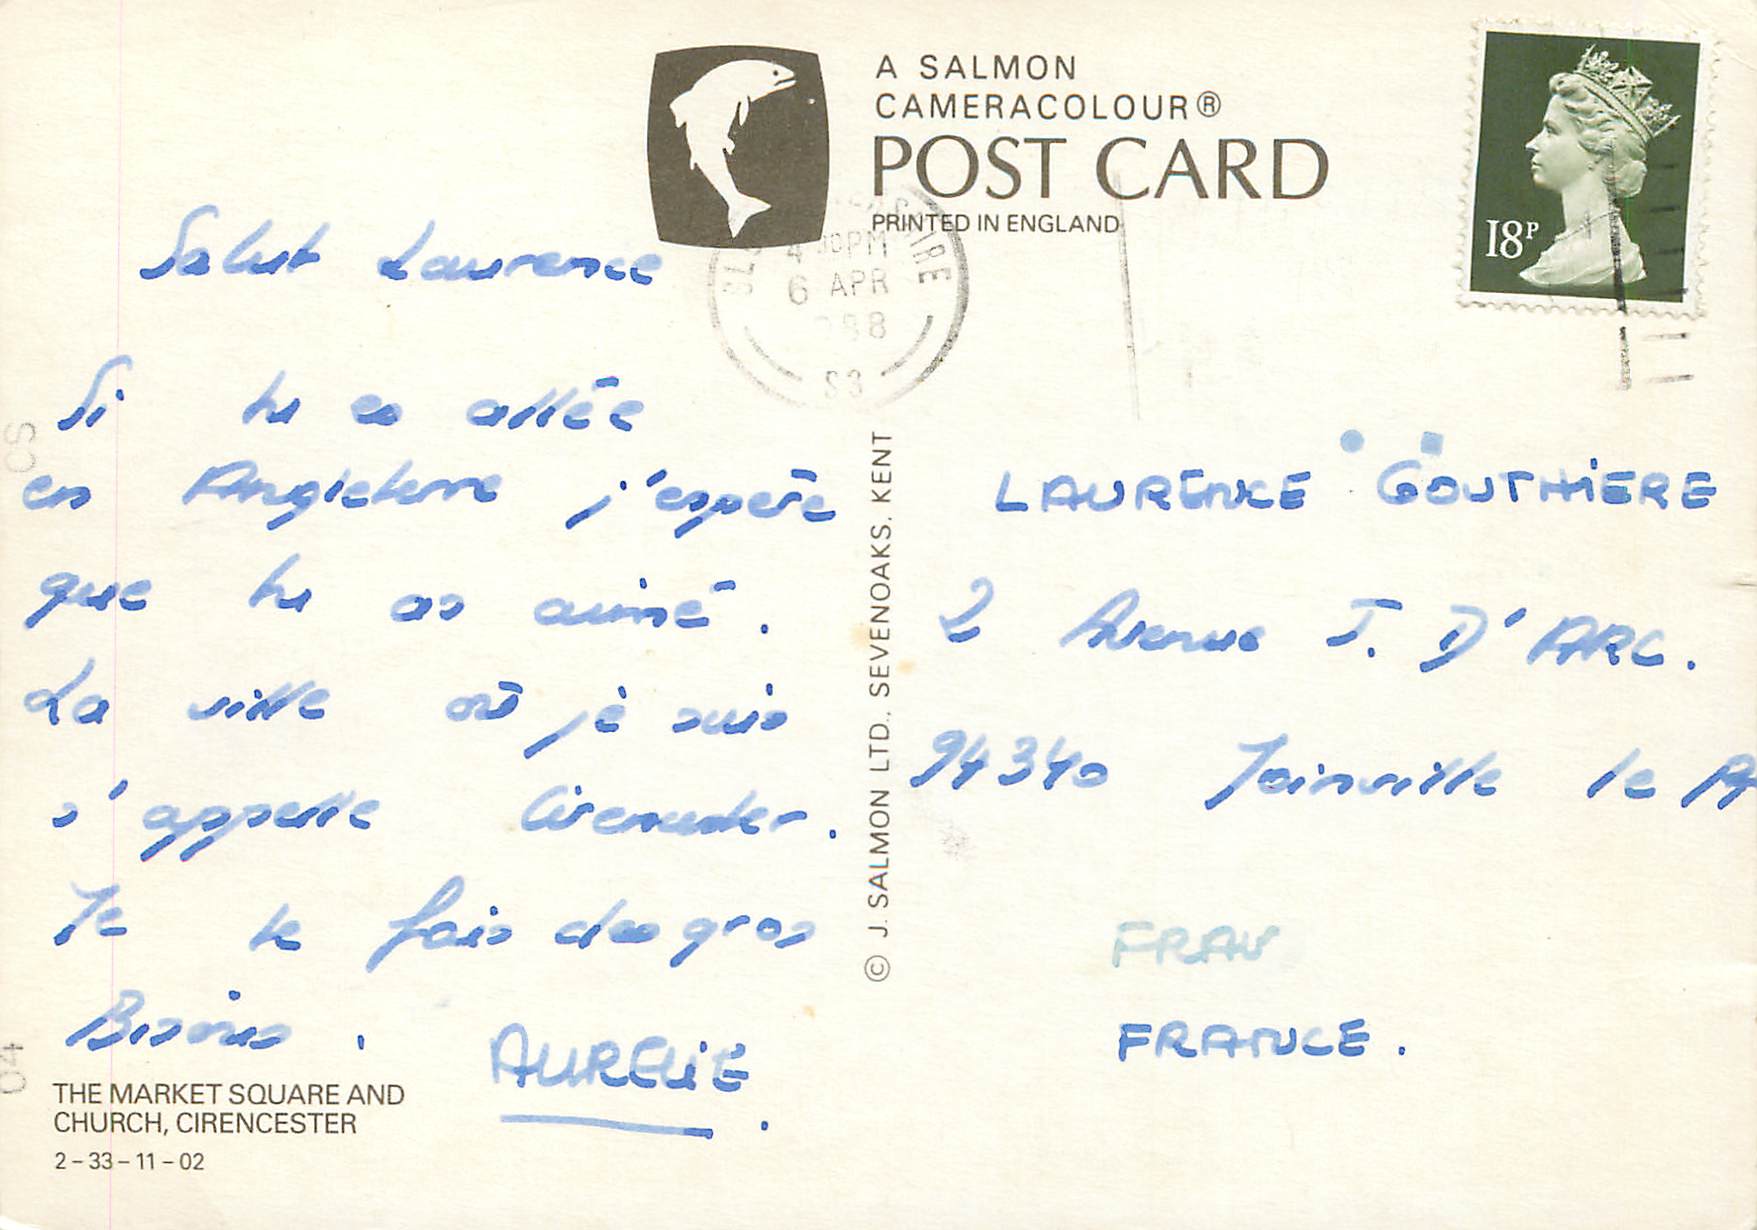 A SALMON
CAMERACOLOUR®
POST CARD
PRINTED IN ENGLAND
18P
4 PM
6 APR
Salut Laurence
Si tu es allée
en Angleterre j'espère
que tu as aimé.
La ville où je suis
s'appelle Cirencester.
Je te fais des gros
Bisous.
AURELIE.
THE MARKET SQUARE AND
CHURCH, CIRENCESTER
2-33-11-02
© J. SALMON LTD., SEVENOAKS, KENT
LAURENCE GOUTHIERE
2 Avenue J. D'ARC.
94340 Joinville le
FRAN
FRANCE.
CS
04